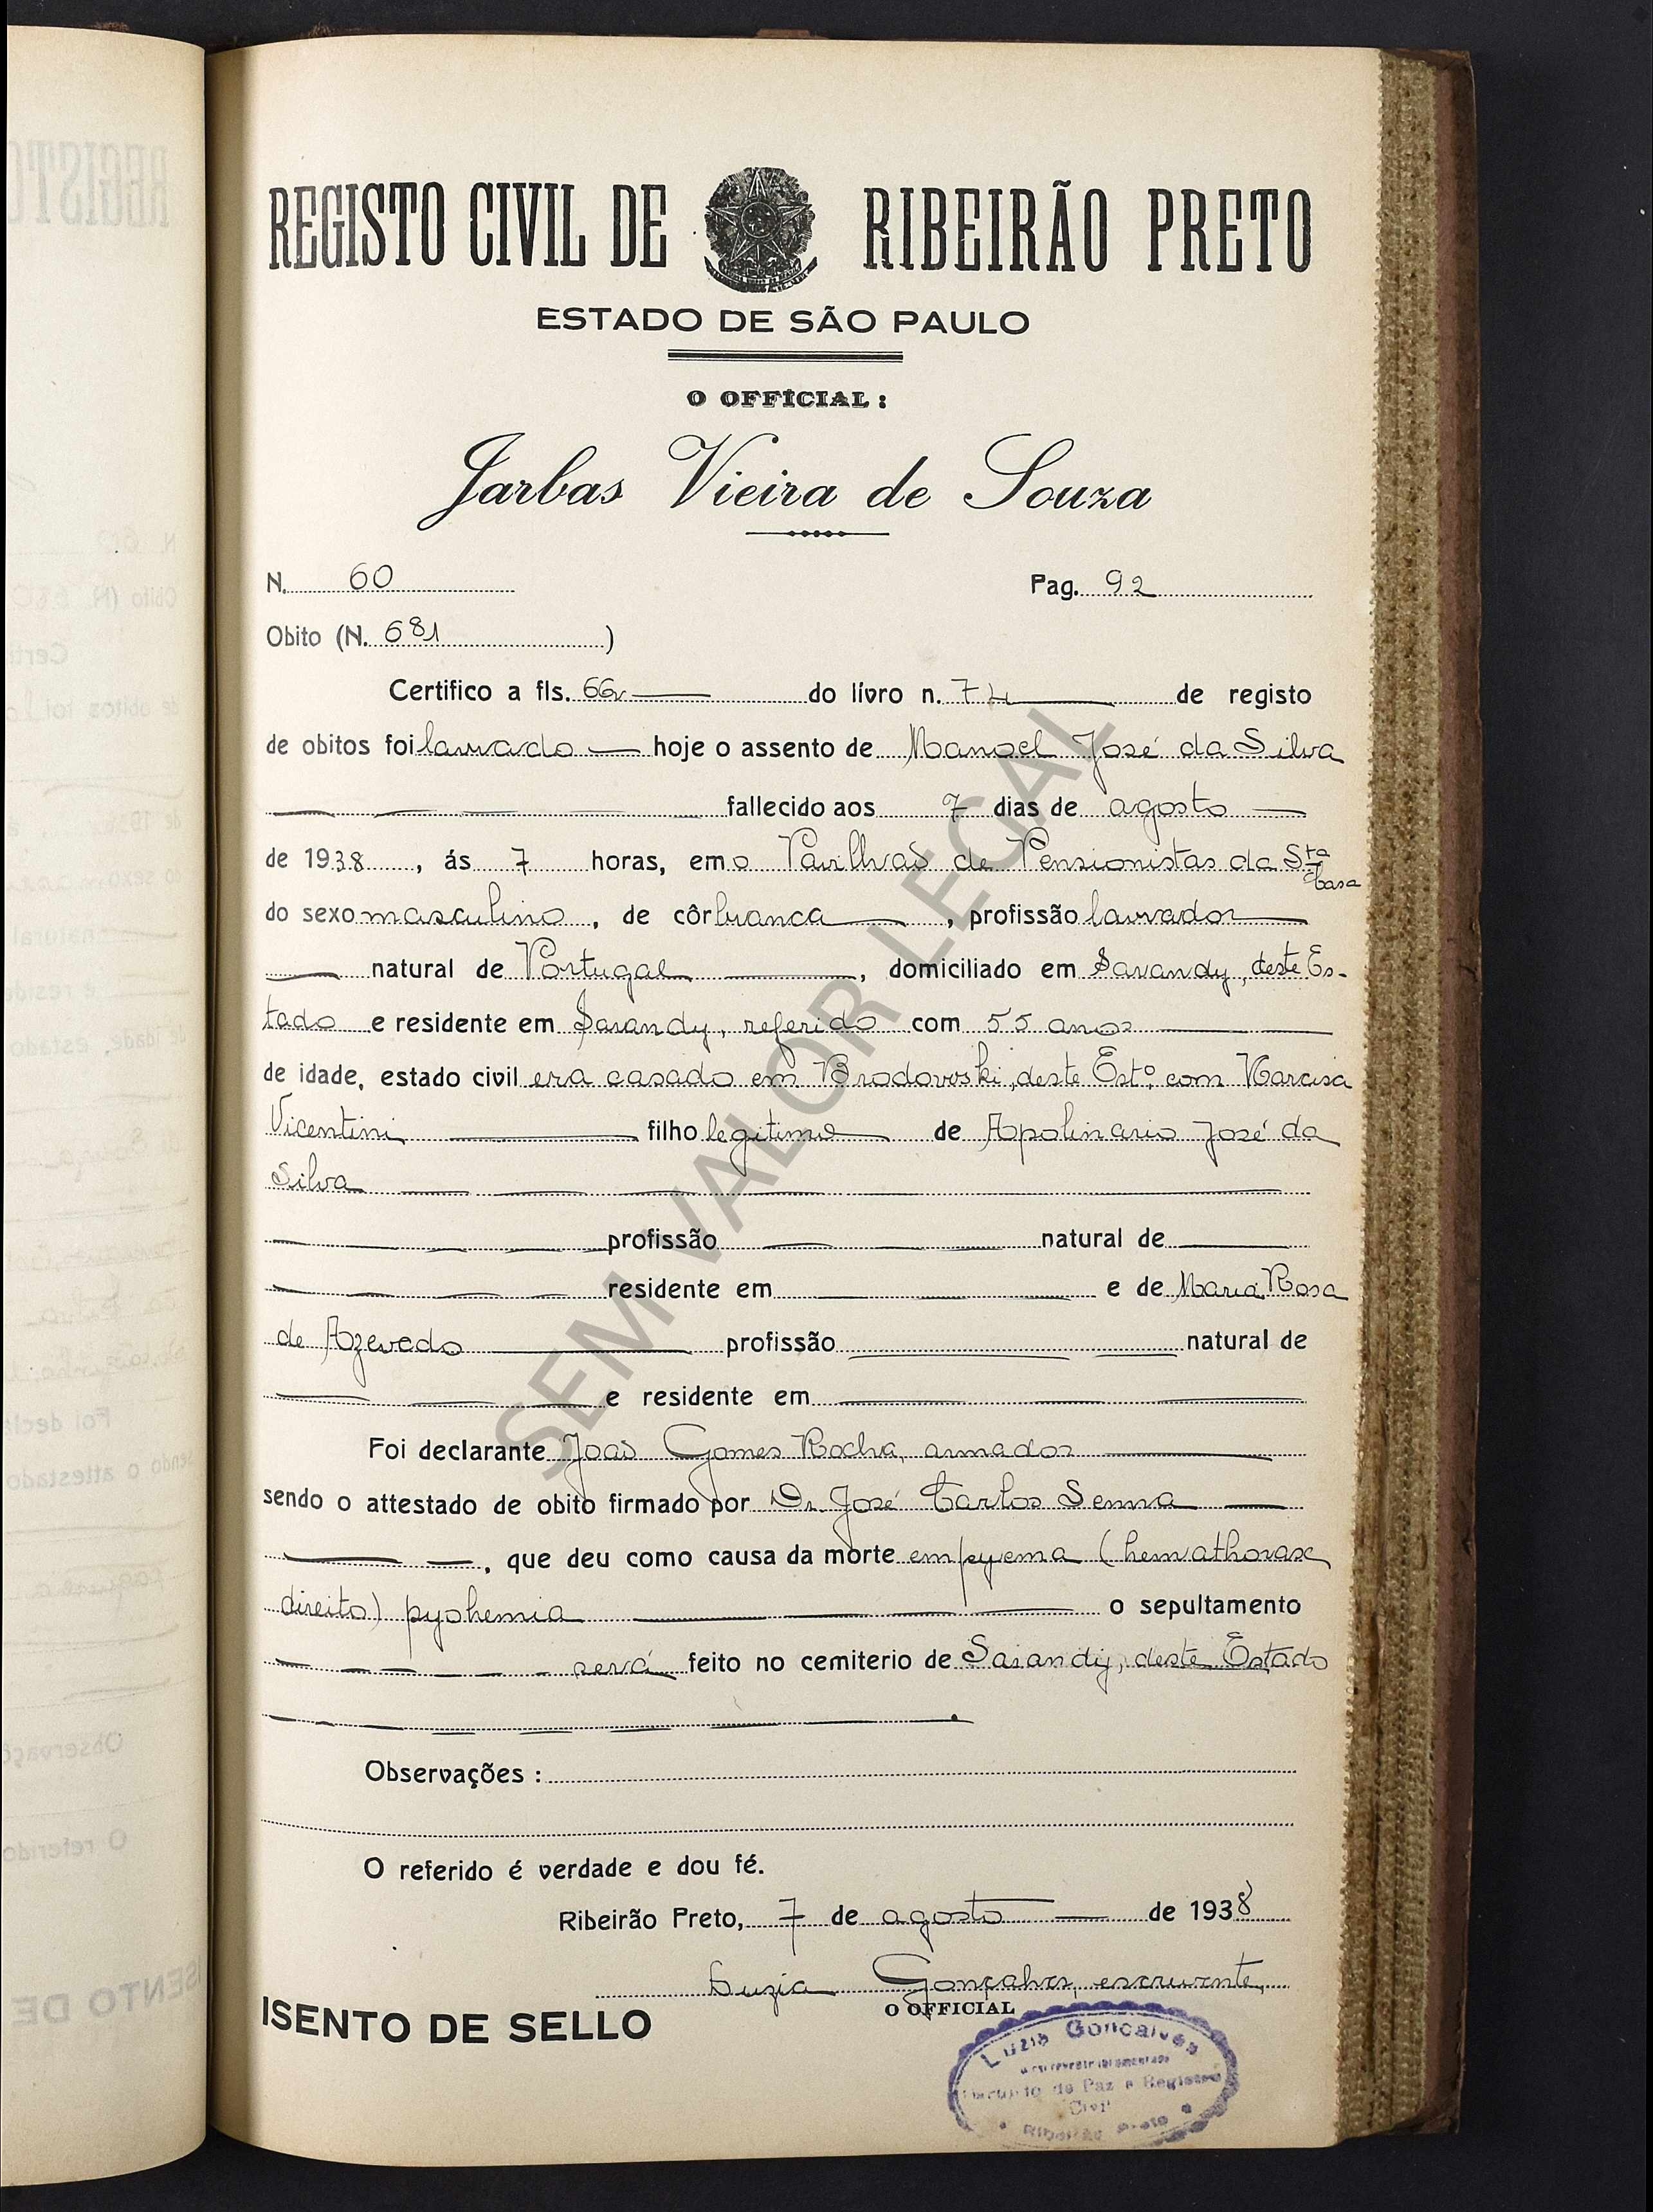 REGISTO CIVIL DE RIBEIRÃO PRETO
ESTADO DE SÃO PAULO
O OFFICIAL:
Jarbas Vieira de Souza
N. 60 Pag. 92
Obito (N. 681)
Certifico a fls. 66v do livro n. 74 de registo
de obitos foi lavrado hoje o assento de Manoel José da Silva
fallecido aos 7 dias de agosto
de 1938, ás 7 horas, em o Pavilhaõ de Pensionistas da Sta Casa
do sexo masculino, de côr branca, profissão lavrador
natural de Portugal, domiciliado em Sarandy, deste Es-
tado e residente em Sarandy, referido com 55 anos
de idade, estado civil era casado em Brodowski, deste Estº, com Narcisa
Vicentini filho legitimo de Apolinario José da
Silva
profissão natural de
residente em e de Maria Rosa
de Azevedo profissão natural de
e residente em
Foi declarante Joaõ Gomes Rocha, armador
sendo o attestado de obito firmado por Dr. José Carlos Senna
, que deu como causa da morte empyema (hemathorax
direito) pyohemia o sepultamento
será feito no cemiterio de Sarandy, deste Estado
Observações:
O referido é verdade e dou fé.
Ribeirão Preto, 7 de agosto de 1938
Luzia Gonçalves, escrevente
O OFFICIAL
ISENTO DE SELLO
Luzia Gonçalves
de Paz e Registro
Civil
Ribeirão Preto
SEM VALOR LEGAL